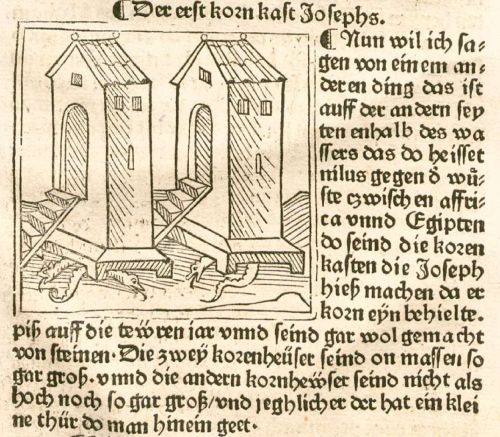 ¶ Der erst korn kast Josephs.
¶ Nun wil ich sa⸗
gen von einem an⸗
deren ding das ist
auff der andern sey
ten enhalb des wa
ssers das do heisset
nilus gegen ð wuͤ⸗
ste czwischen affri⸗
ca vnnd Egipten
do seind die koren
kasten die Joseph
hieß machen da er
korn eyn behielte.
piß auff die tewren iar vnnd seind gar wol gemacht
von steinen. Die zweÿ korenheüser seind on massen so
gar groß. vnnd die andern kornhewser seind nicht als
hoch noch so gar groß/vnd jeghlicher der hat ein klei
ne thür do man hinein geet.